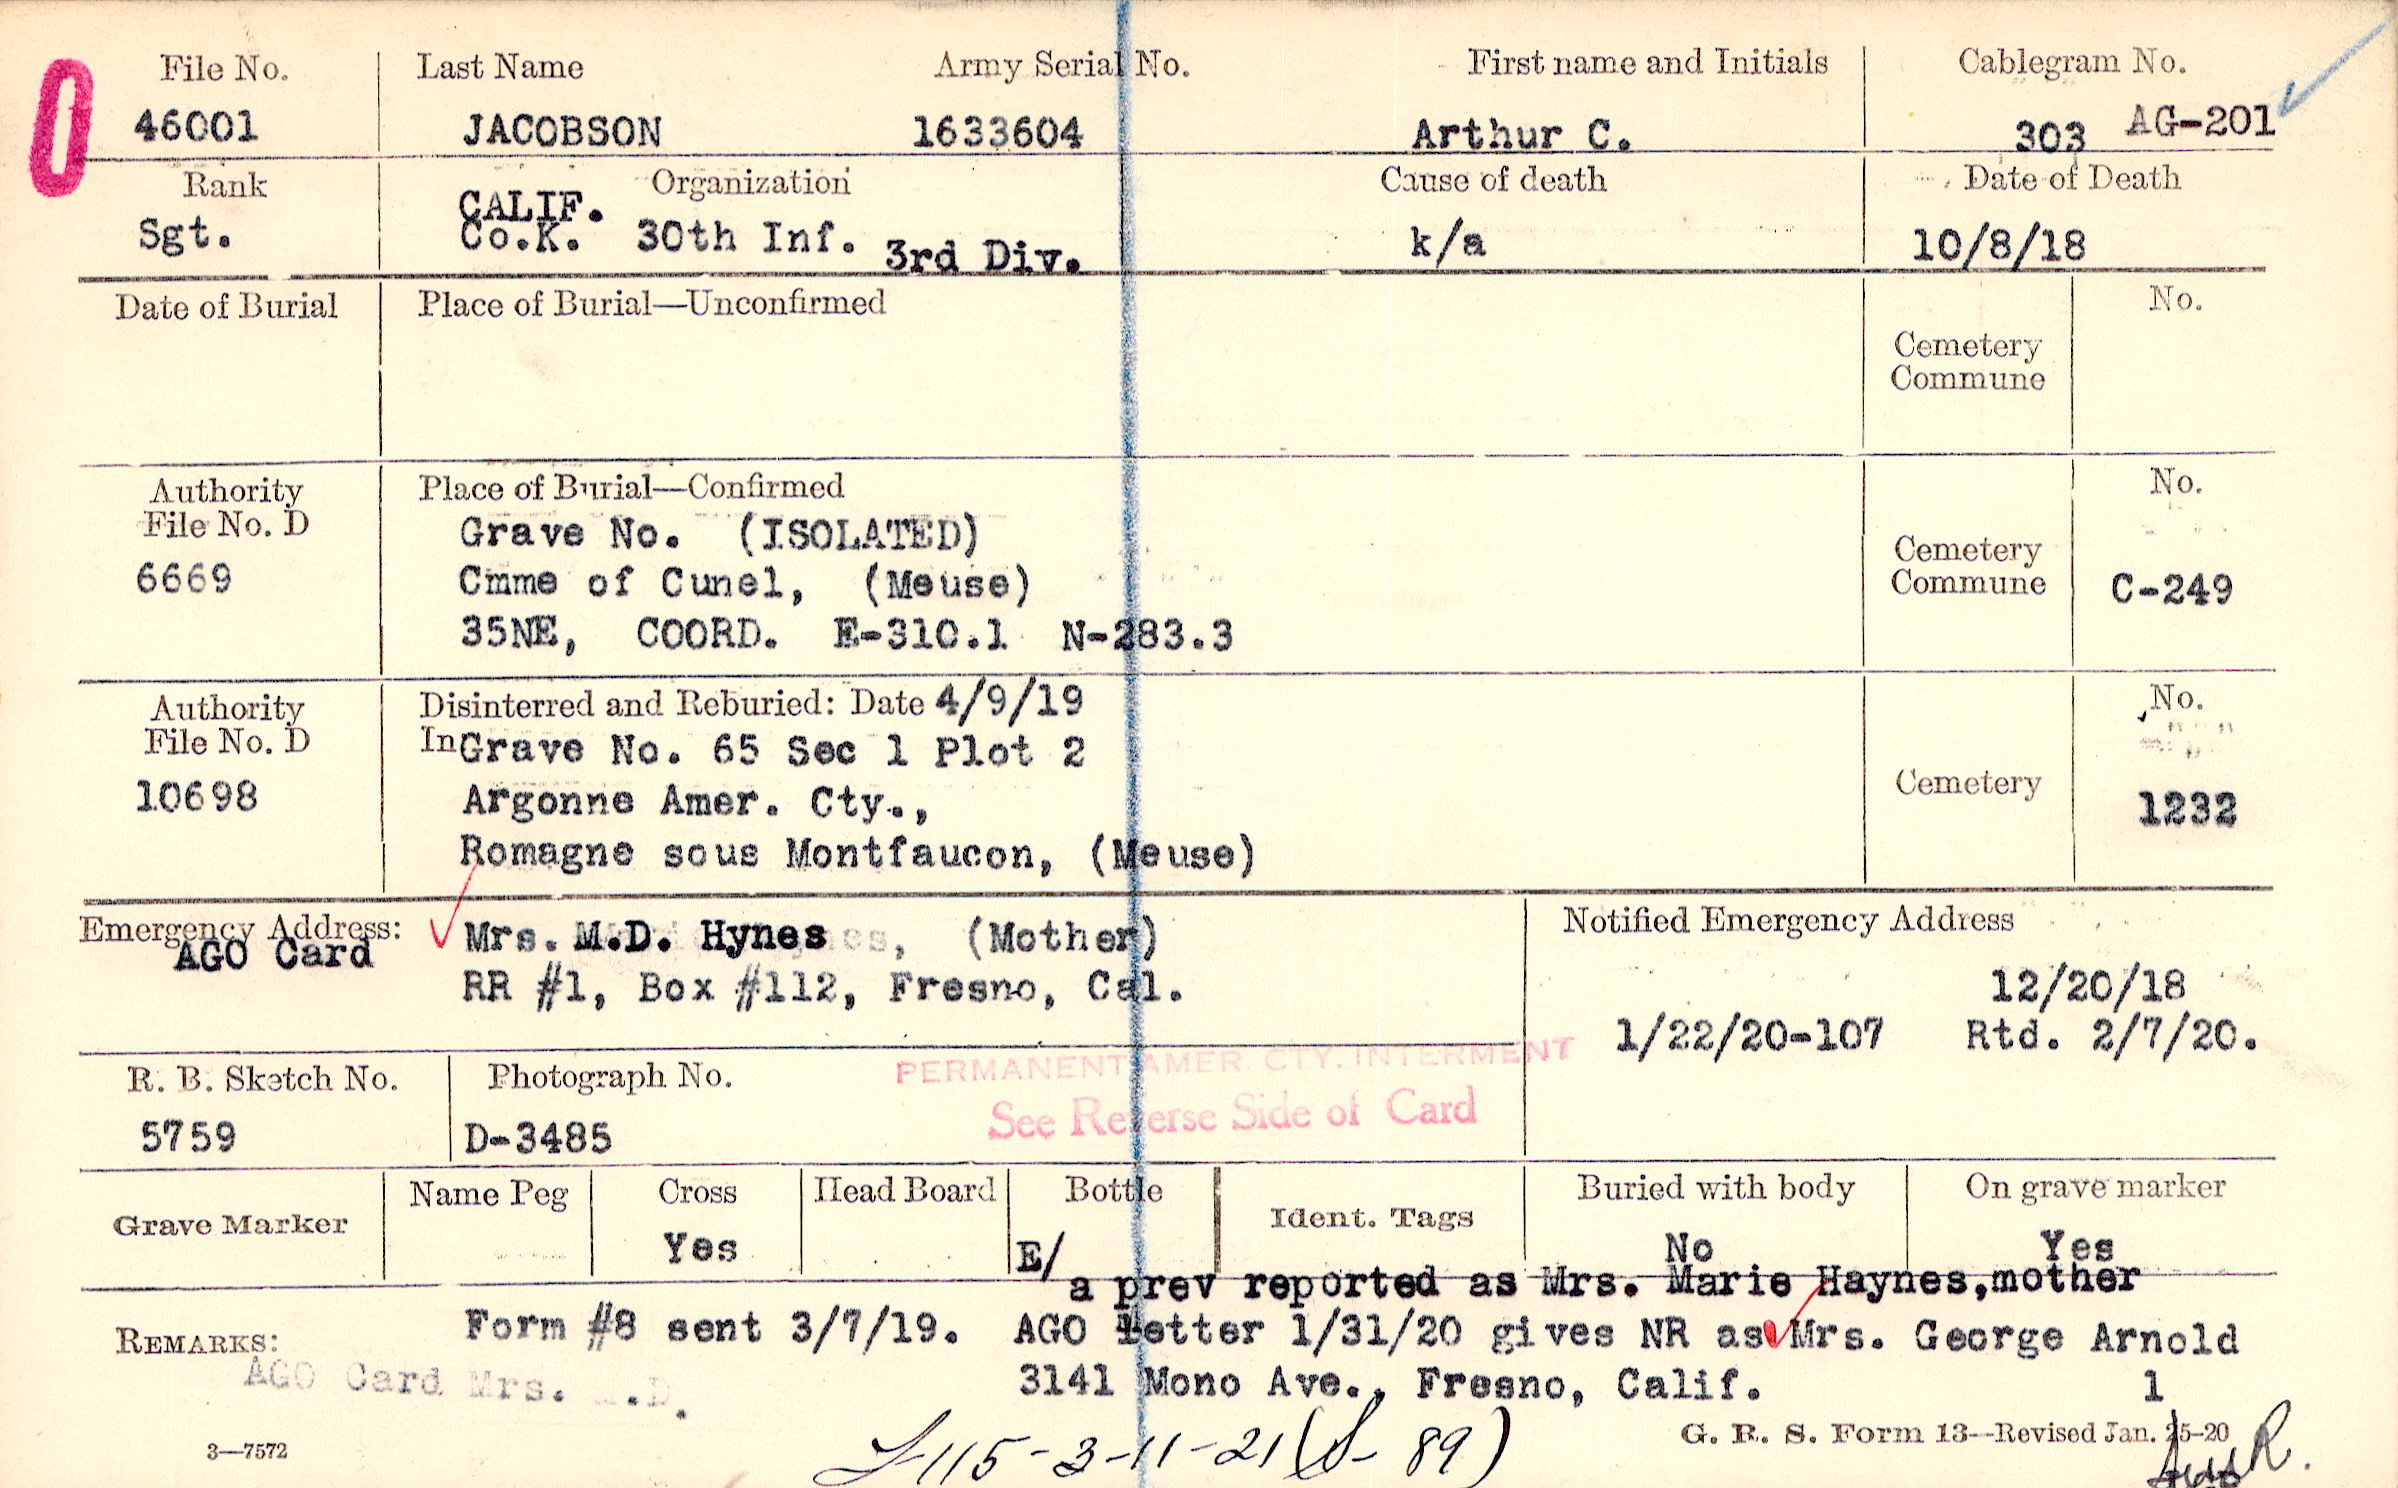 File No. Last Name Army Serial No. First name and Initials Cablegram No.
46001 JACOBSON 1633604 Arthur C. 303 AG-201
Rank Organization Cause of death Date of Death
CALIF.
Sgt. Co.K. 30th Inf. 3rd Div. k/a 10/8/18
Date of Burial Place of Burial—Unconfirmed No.
Cemetery
Commune
Authority Place of Burial—Confirmed No.
File No. D Grave No. (ISOLATED)
6669 Cmme of Cunel, (Meuse) Cemetery
Commune C-249
35NE, COORD. E-310.1 N-283.3
Authority Disinterred and Reburied: Date 4/9/19 No.
File No. D In Grave No. 65 Sec 1 Plot 2
10698 Argonne Amer. Cty., Cemetery 1232
Romagne sous Montfaucon, (Meuse)
Emergency Address: Mrs. M.D. Hynes, (Mother) Notified Emergency Address
AGO Card
RR #1, Box #112, Fresno, Cal. 12/20/18
1/22/20-107 Rtd. 2/7/20.
PERMANENT AMER. CTY. INTERMENT
R. B. Sketch No. Photograph No.
See Reverse Side of Card
5759 D-3485
Grave Marker Name Peg Cross Head Board Bottle Ident. Tags Buried with body On grave marker
Yes E/ No Yes
a prev reported as Mrs. Marie Haynes,mother
REMARKS: Form #8 sent 3/7/19. AGO Letter 1/31/20 gives NR as Mrs. George Arnold
AGO Card Mrs. .D. 3141 Mono Ave., Fresno, Calif. 1
3—7572 G. R. S. Form 13—Revised Jan. 25-20
115-3-11-21 (S-89)